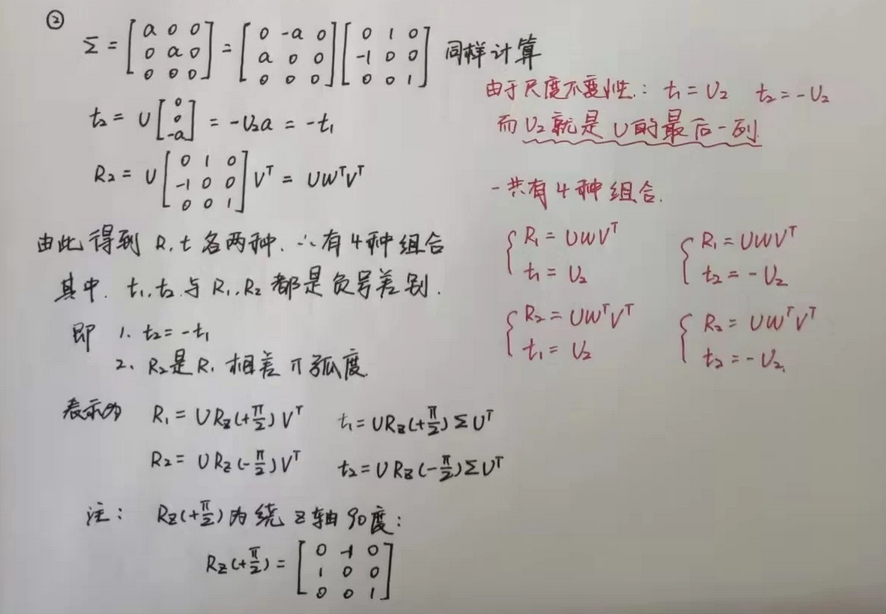 ②
Σ = [a 0 0; 0 a 0; 0 0 0] = [0 -a 0; a 0 0; 0 0 0] [0 1 0; -1 0 0; 0 0 1] 同样计算
t₂ = U [0; 0; -a] = -U₂a = -t₁
R₂ = U [0 1 0; -1 0 0; 0 0 1] Vᵀ = UWᵀVᵀ
由此得到 R, t 各两种. ∴有4种组合
其中. t₁, t₂ 与 R₁, R₂ 都是负号差别.
即 1. t₂ = -t₁
2. R₂是R₁ 相差 π 弧度.
表示为 R₁ = U R_Z(+π/2) Vᵀ t₁ = U R_Z(+π/2) Σ Uᵀ
R₂ = U R_Z(-π/2) Vᵀ t₂ = U R_Z(-π/2) Σ Uᵀ
注: R_Z(+π/2) 为绕 Z 轴 90度:
R_Z(+π/2) = [0 -1 0; 1 0 0; 0 0 1]
由于尺度不变性: t₁ = U₂ t₂ = -U₂
而 U₂ 就是 U 的最后一列.
一共有4种组合.
{ R₁ = UWVᵀ
t₁ = U₂
{ R₁ = UWVᵀ
t₂ = -U₂
{ R₂ = UWᵀVᵀ
t₁ = U₂
{ R₂ = UWᵀVᵀ
t₂ = -U₂.